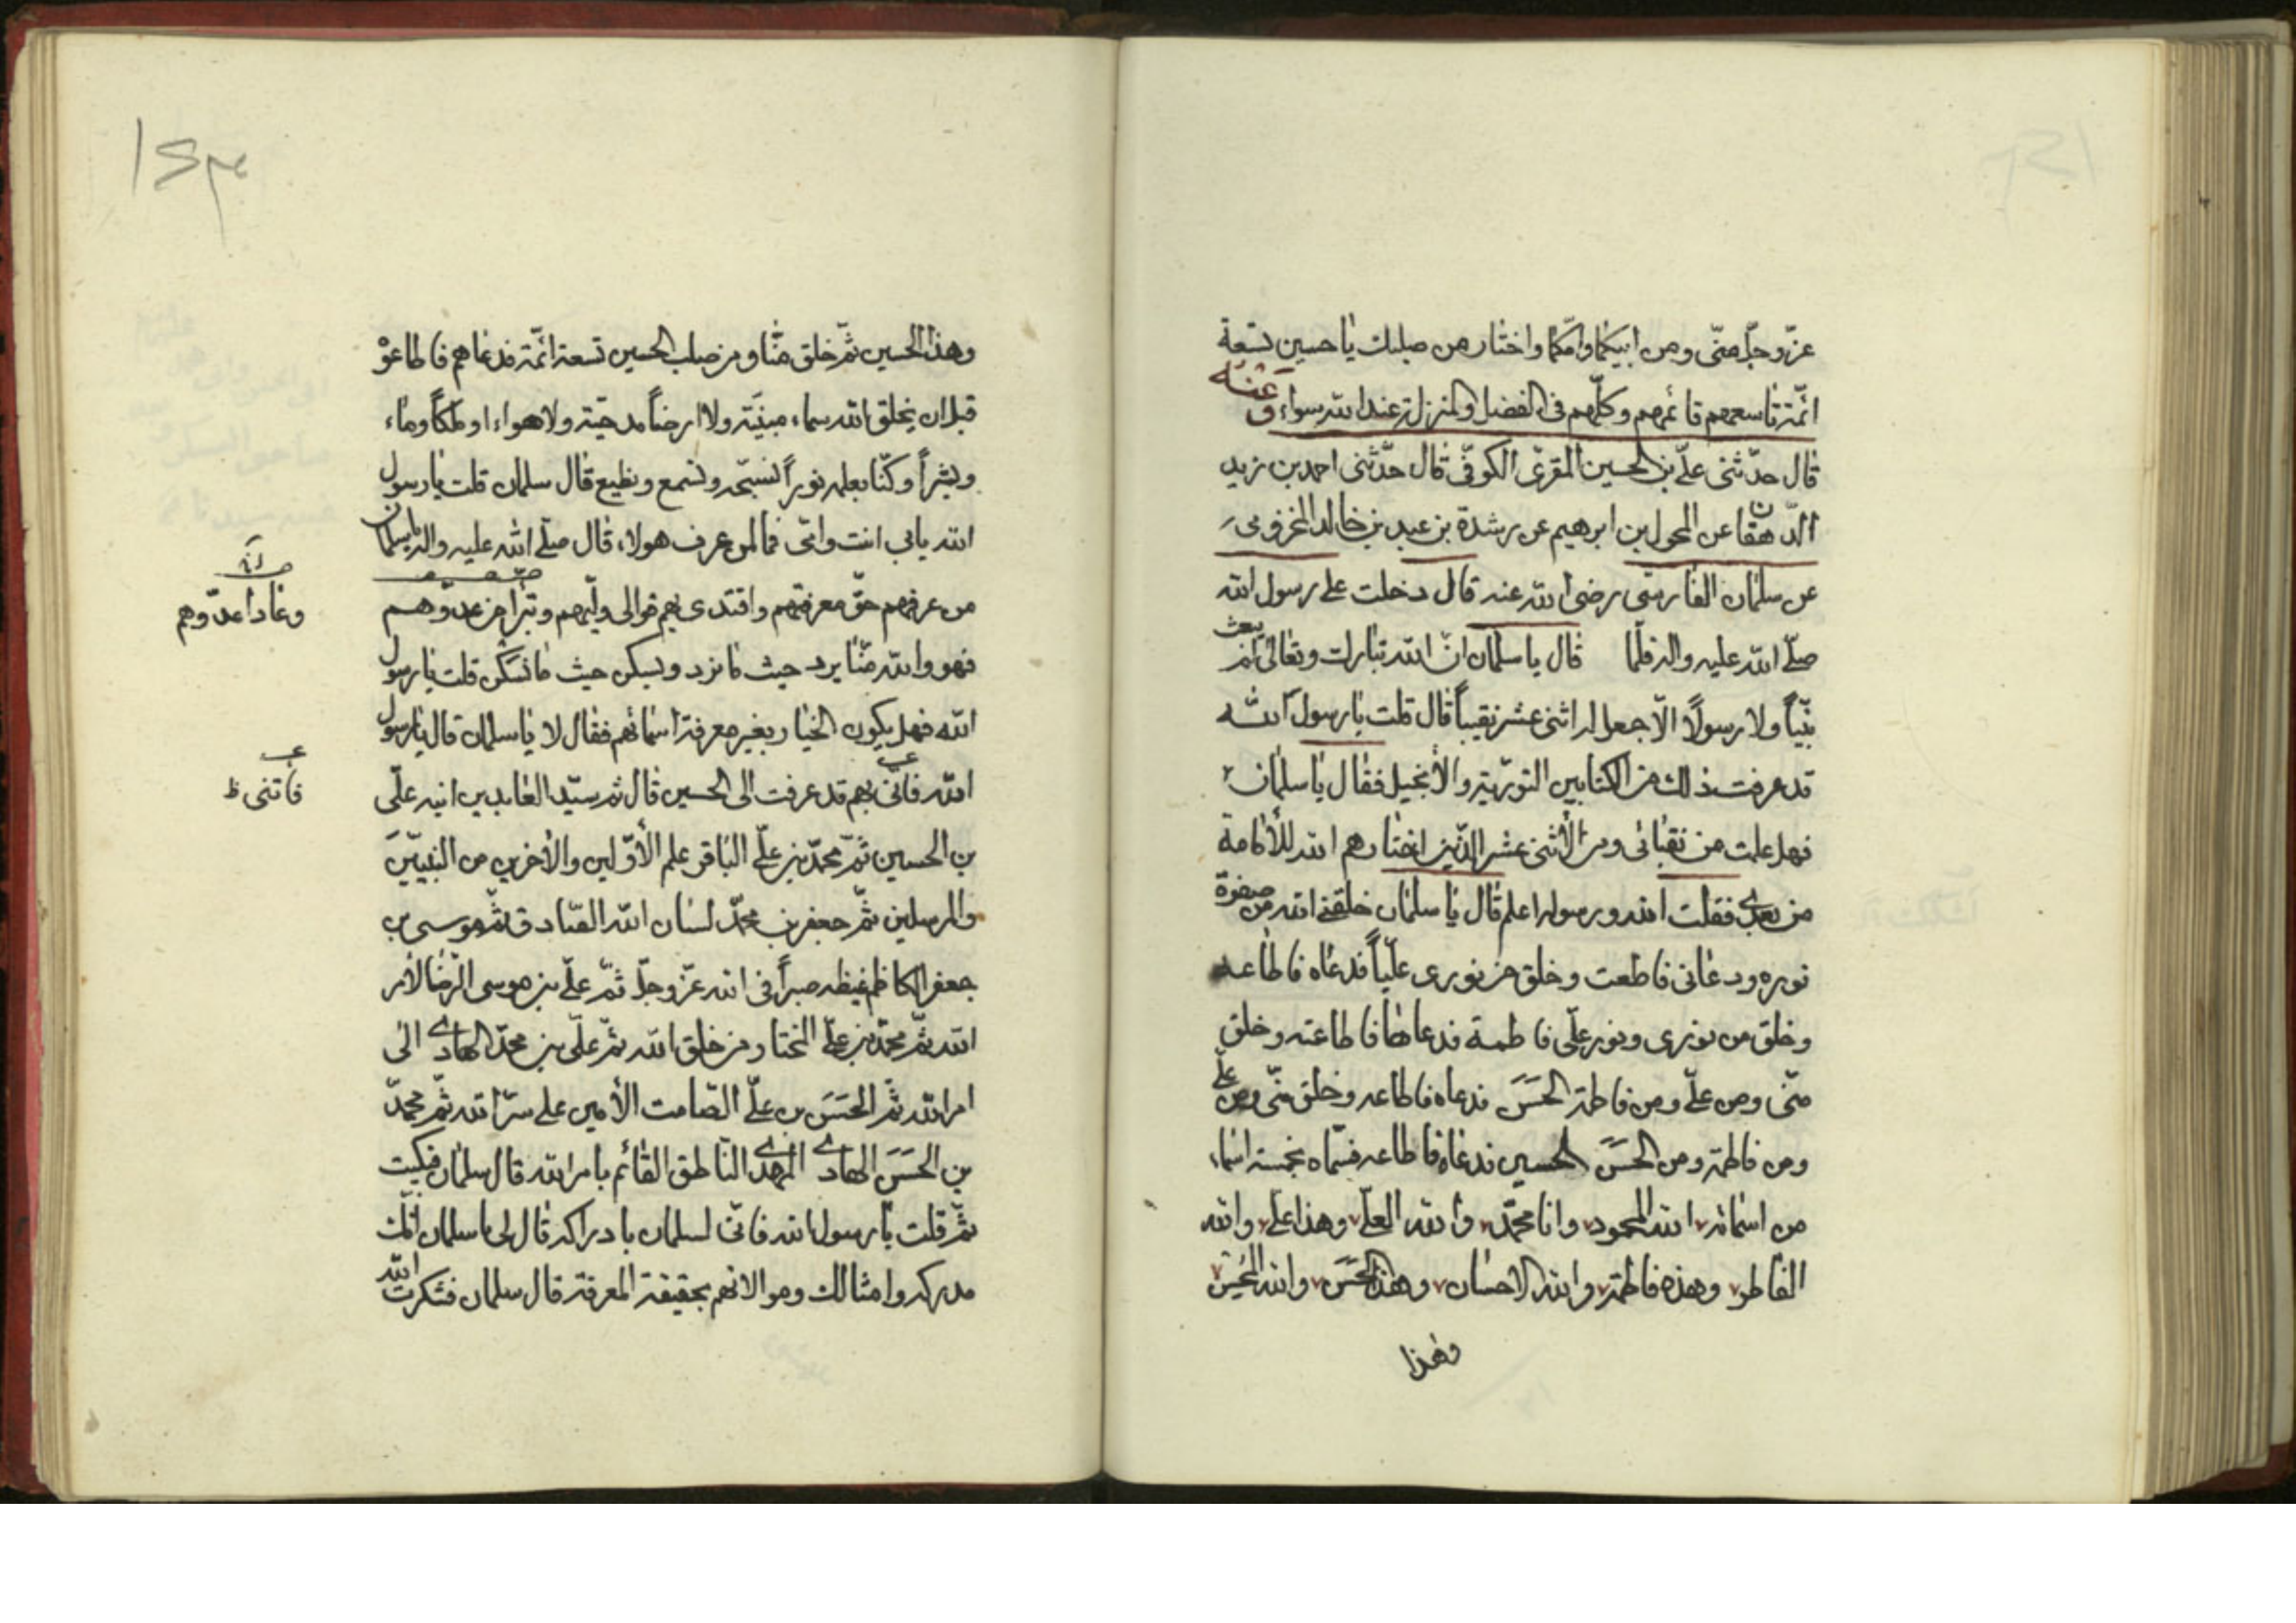 عزّ وجلّ منّى ومن ابيكما وامّكما واختار من صلبك يا حسين تسعة
ائمّة تاسعهم قائمهم وكلّهم فى الفضل والمنزلة عند الله سواء وعنه
قال حدّثنى علىّ بن الحسين المقرى الكوفى قال حدّثنى احمد بن زيد
الدّهقان عن المحول بن ابرهيم عن رشدة بن عبد بن خالد المخزومى
عن سلمان الفارسى رضى الله عنه قال دخلت على رسول الله
صلّى الله عليه واله فلمّا قال يا سلمان انّ الله تبارك وتعالى لم يبعث
نبيّاً ولا رسولاً الّا جعل له اثنى عشر نقيباً قال قلت يا رسول الله
قد عرفت ذلك من الكتابين التوريّة والأنجيل فقال يا سلمان
فهل علمت من نقبائى ومن الأثنى عشر الّذين اختارهم الله للأمامة
من بعدى فقلت الله ورسوله اعلم قال يا سلمان خلقنى الله من صفوة
نوره ودعانى فاطعت وخلق من نورى عليّاً فدعاه فاطاعه
وخلق من نورى ونور علّى فاطمة فدعاها فاطاعته وخلق
منّى ومن علىّ ومن فاطمة الحَسَنَ فدعاه فاطاعه وخلق منّى ومن علىّ
ومن فاطمة ومن الحَسَنَ الحسين فدعاه فاطاعه فسمّاه بخمسة اسماء
من اسمائه الله المحمود وانا محمّد والله العلىّ وهذا علىّ والله
الفاطر وهذه فاطمة والله الاحسان وهذا الحَسَن والله المحسن
وهذا
۱۲۳
وهذا الحسين ثمّ خلق منّا ومن صلب الحسين تسعة ائمّة فدعاهم فاطاعوْ
قبل ان يخلق الله سماء مبنيّة ولا ارضاً مدحيّة ولا هواء او ملكاً وماء
وبشراً وكنّا بعلمه نوراً نسبّحه ونسمع ونطيع قال سلمان قلت يا رسول
الله بابى انت وامّى فما لمن عرف هولاء قال صلّى الله عليه واله يا سلمان
من عرفهم حقّ معرفتهم واقتدى بهم فوالى وليّهم وتبرّأ من عدوّهم
وعادا عدّوهم
فهو والله منّا يرد حيث ما نرد ويسكن حيث ما نسكن قلت يا رسول
الله فهل يكون الخيار بغير معرفة اسمائهم فقال لا يا سلمان قال يا رسول
الله فانّى بهم قد عرفت الى الحسين قال ثم سيّد العابدين ابنه علّى
فاتنى ظ
بن الحسين ثمّ محمّد بن علىّ الباقر علم الأوّلين والأخرين من النبيّينَ
والمرسلين ثمّ جعفر بن محمّد لسان الله الصّادق ثمّ موسى بن
جعفر الكاظم غيظه صبراً فى الله عزّ وجلّ ثمّ علىّ بن موسى الرّضا لأمر
الله ثمّ محمّد بن علىّ المختار من خلق الله ثمّ علّى بن محمّد الهادى الى
امر الله ثمّ الحَسَنَ بن علىّ الصّامت الأمين على سرّ الله ثمّ محمّد
بن الحَسَنَ الهادى المهدى النّاطق القائم بامر الله قال سلمان فبكيت
ثمّ قلت يا رسول الله فانّى لسلمان بادراكه قال لى يا سلمان انّك
مدركه وامثالك ومن والاهم بحقيقة المعرفة قال سلمان فشكرت الله